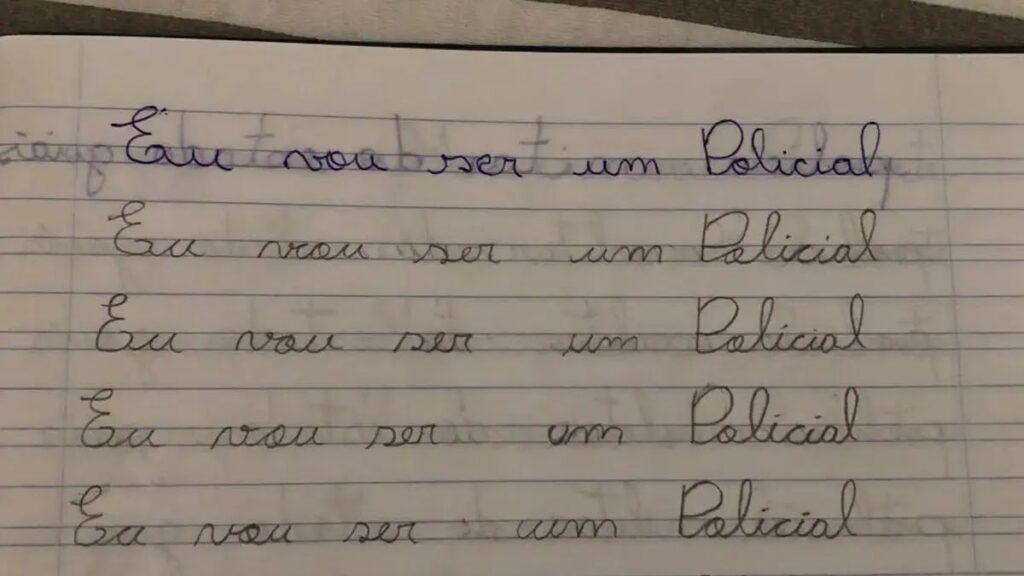 Eu vou ser um Policial
Eu vou ser um Policial
Eu vou ser um Policial
Eu vou ser um Policial
Eu vou ser um Policial